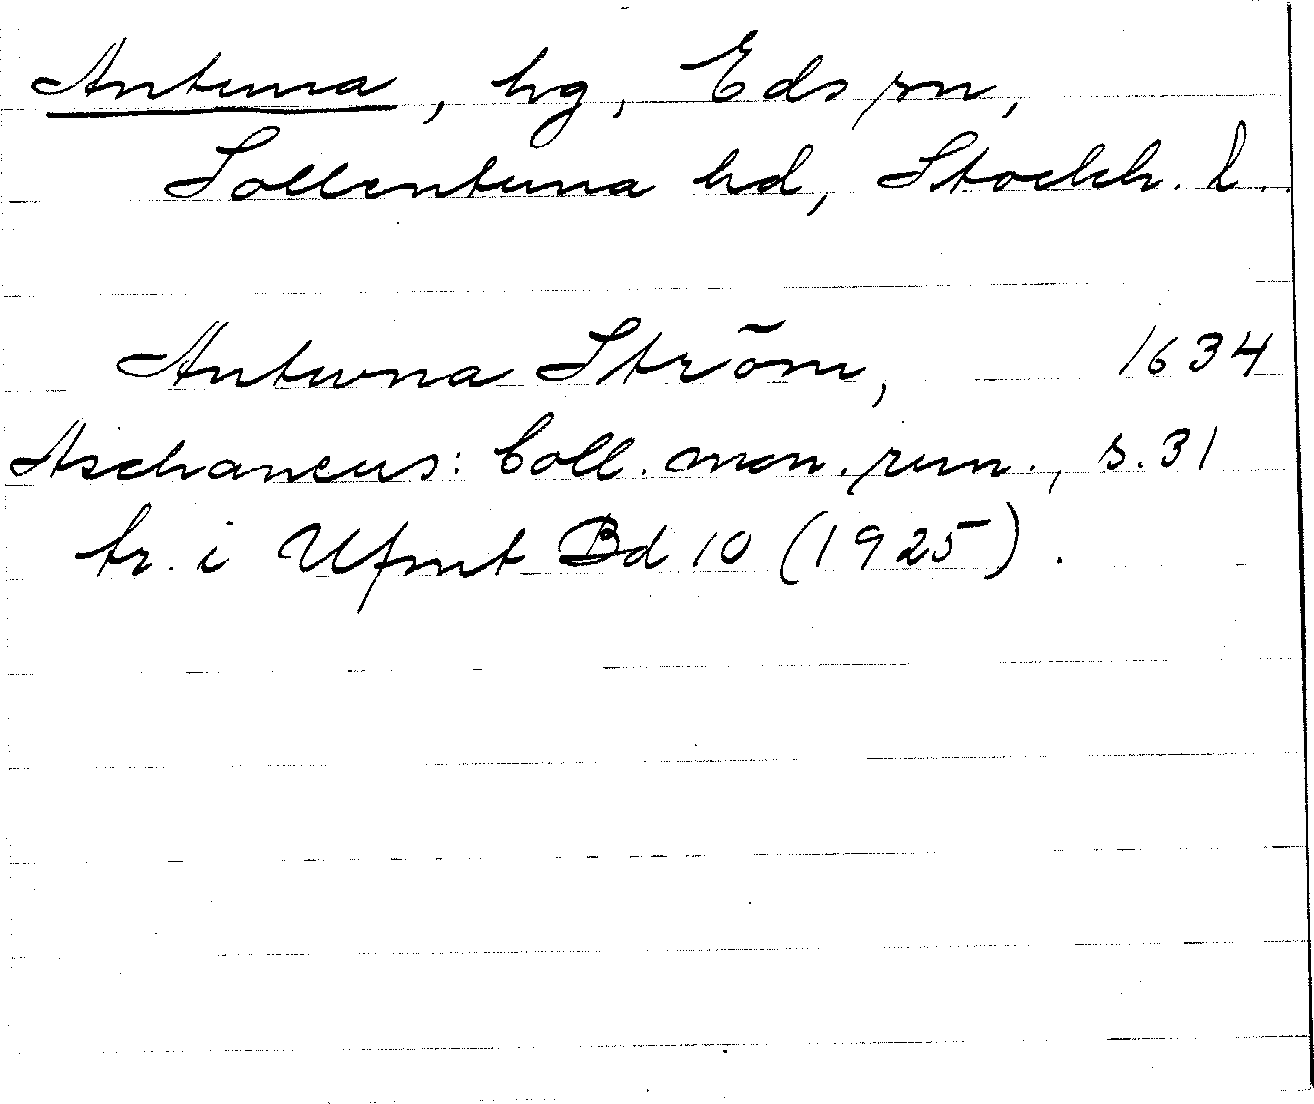 Antuna, hg, Eds sn,
Sollentuna hd, Stockh. l.
Antuna Ström, 1634
Aschaneus: Coll. mon. run., s. 31
tr. i Ufmt Bd 10 (1925).